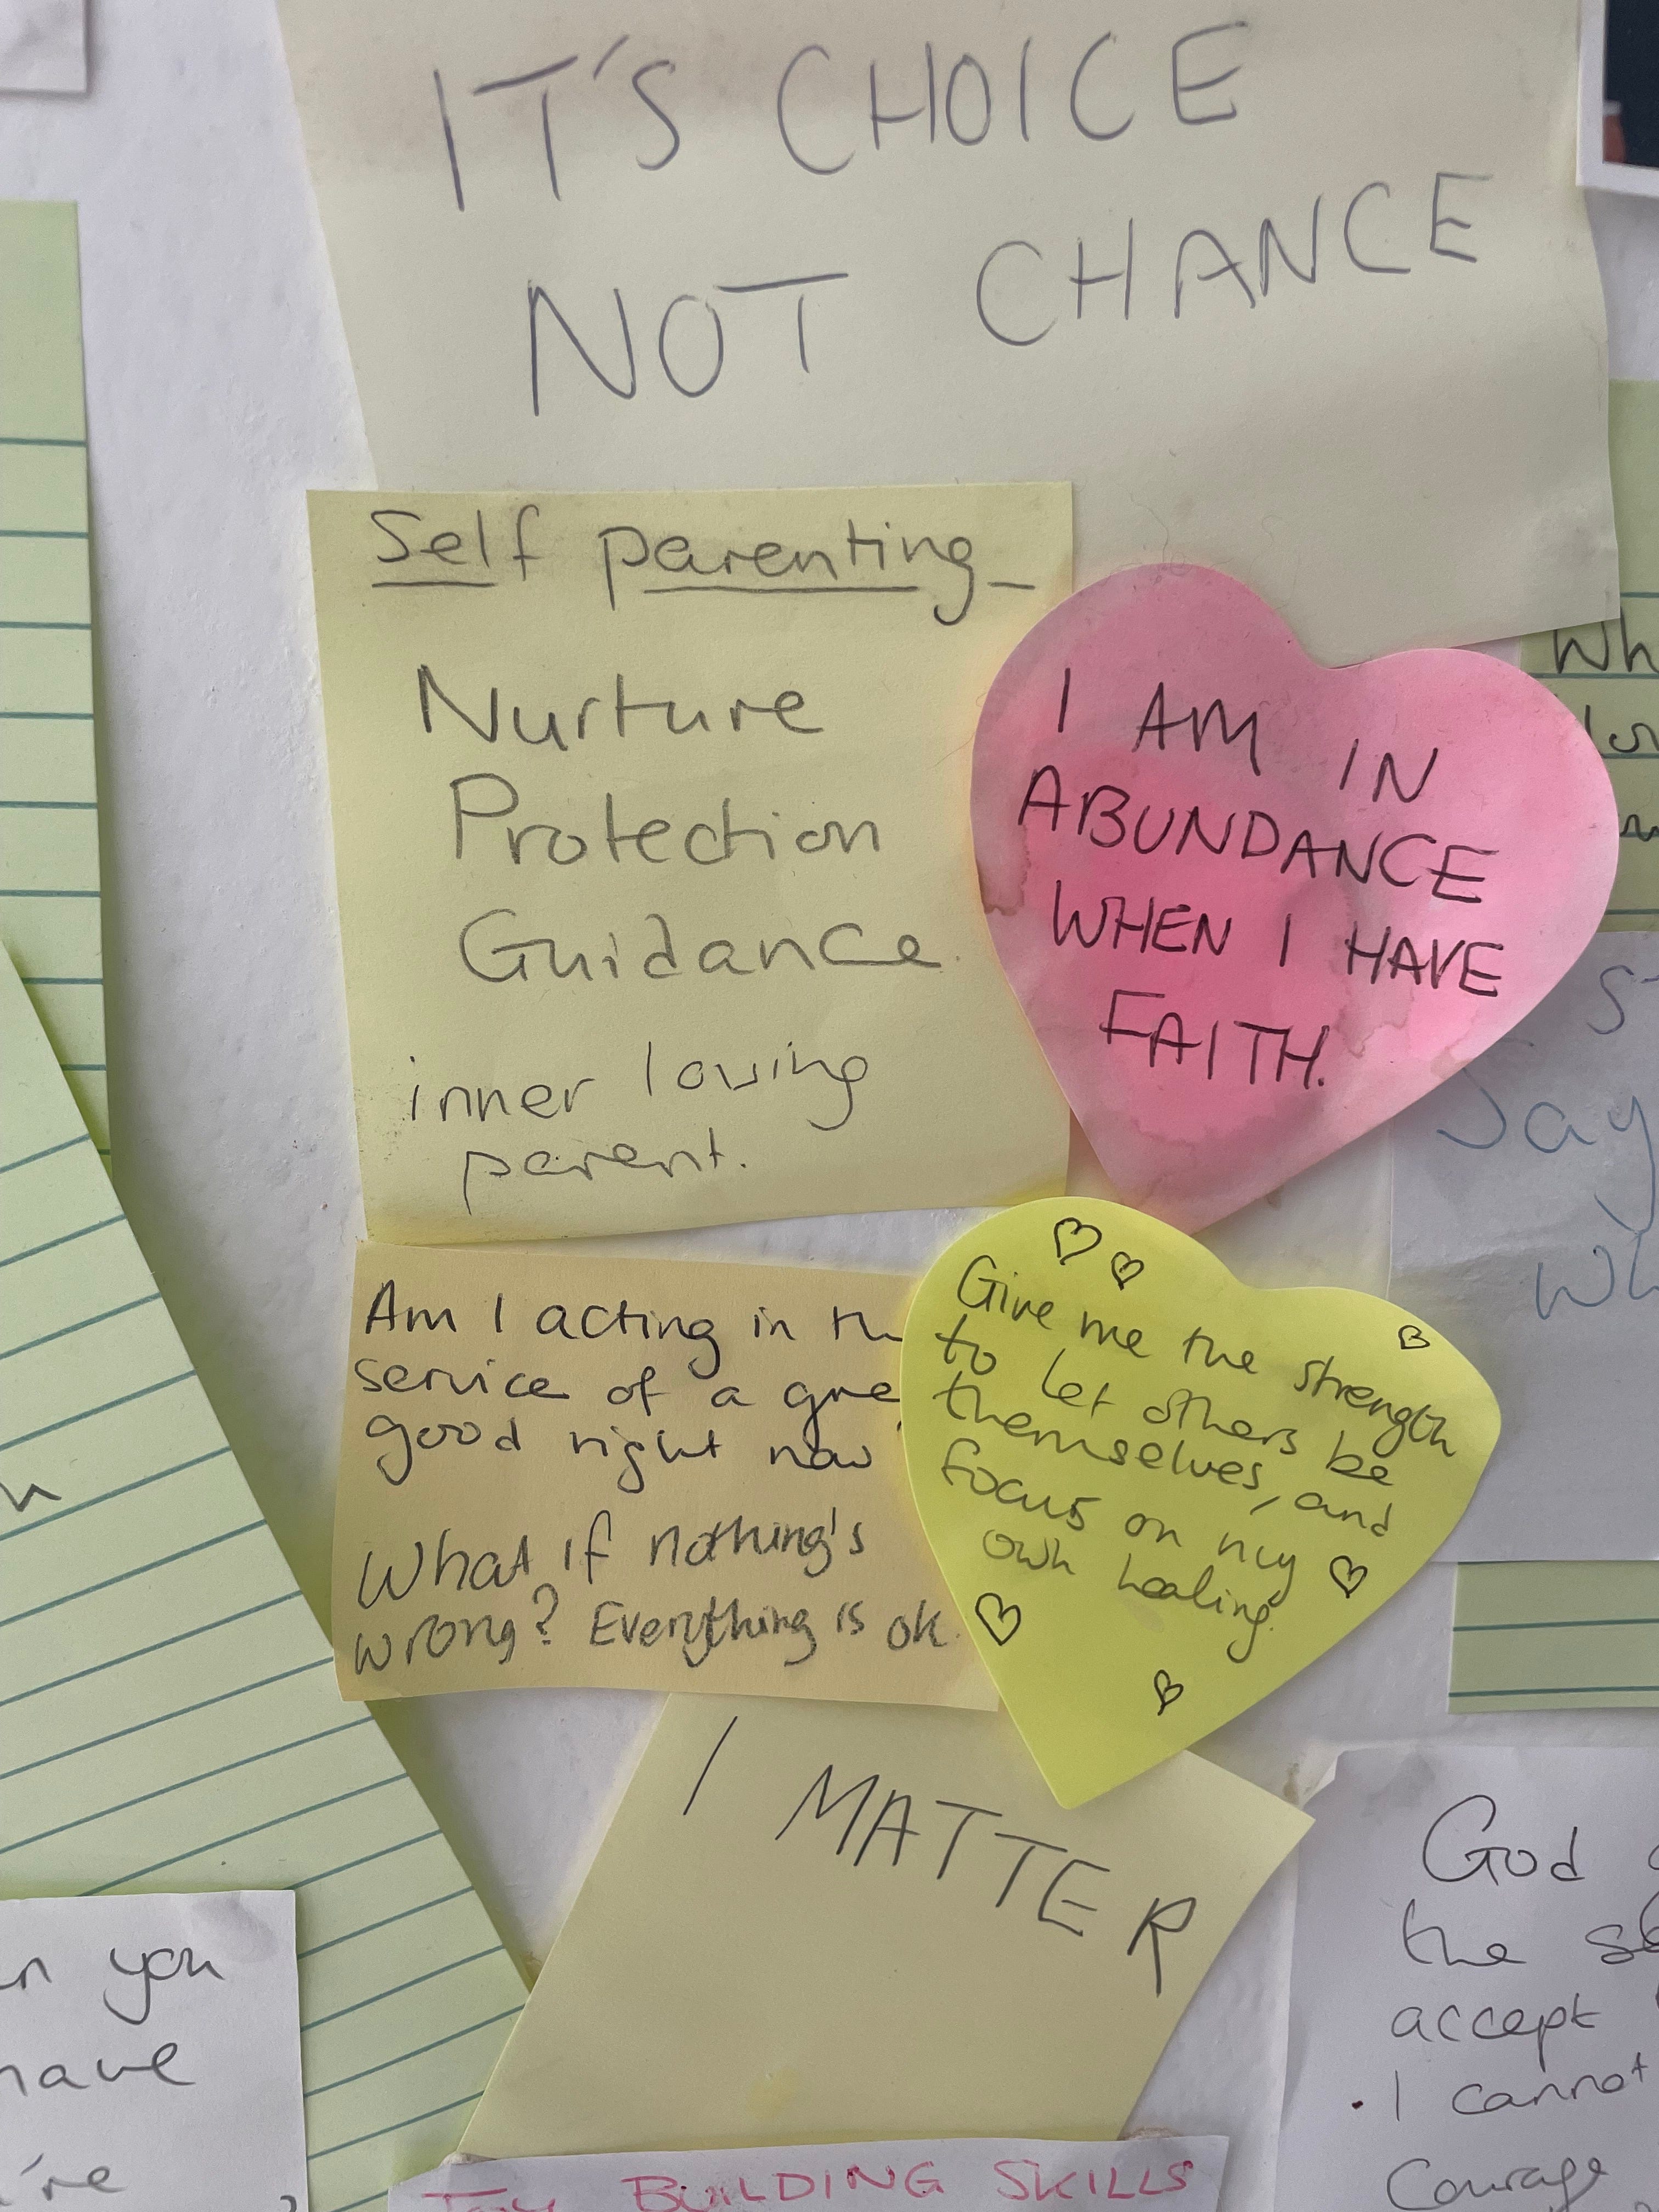 IT'S CHOICE
NOT CHANCE
Self parenting
Nurture
Protection
Guidance
inner loving
parent.
I AM IN
ABUNDANCE
WHEN I HAVE
FAITH.
Am I acting in
service of a
good right now
What if nothing's
wrong? Everything is ok.
Give me the strength
to let others be
themselves, and
focus on my
own healing.
I MATTER
Say
God
the
accept
I cannot
Courage
you
have
BUILDING SKILLS